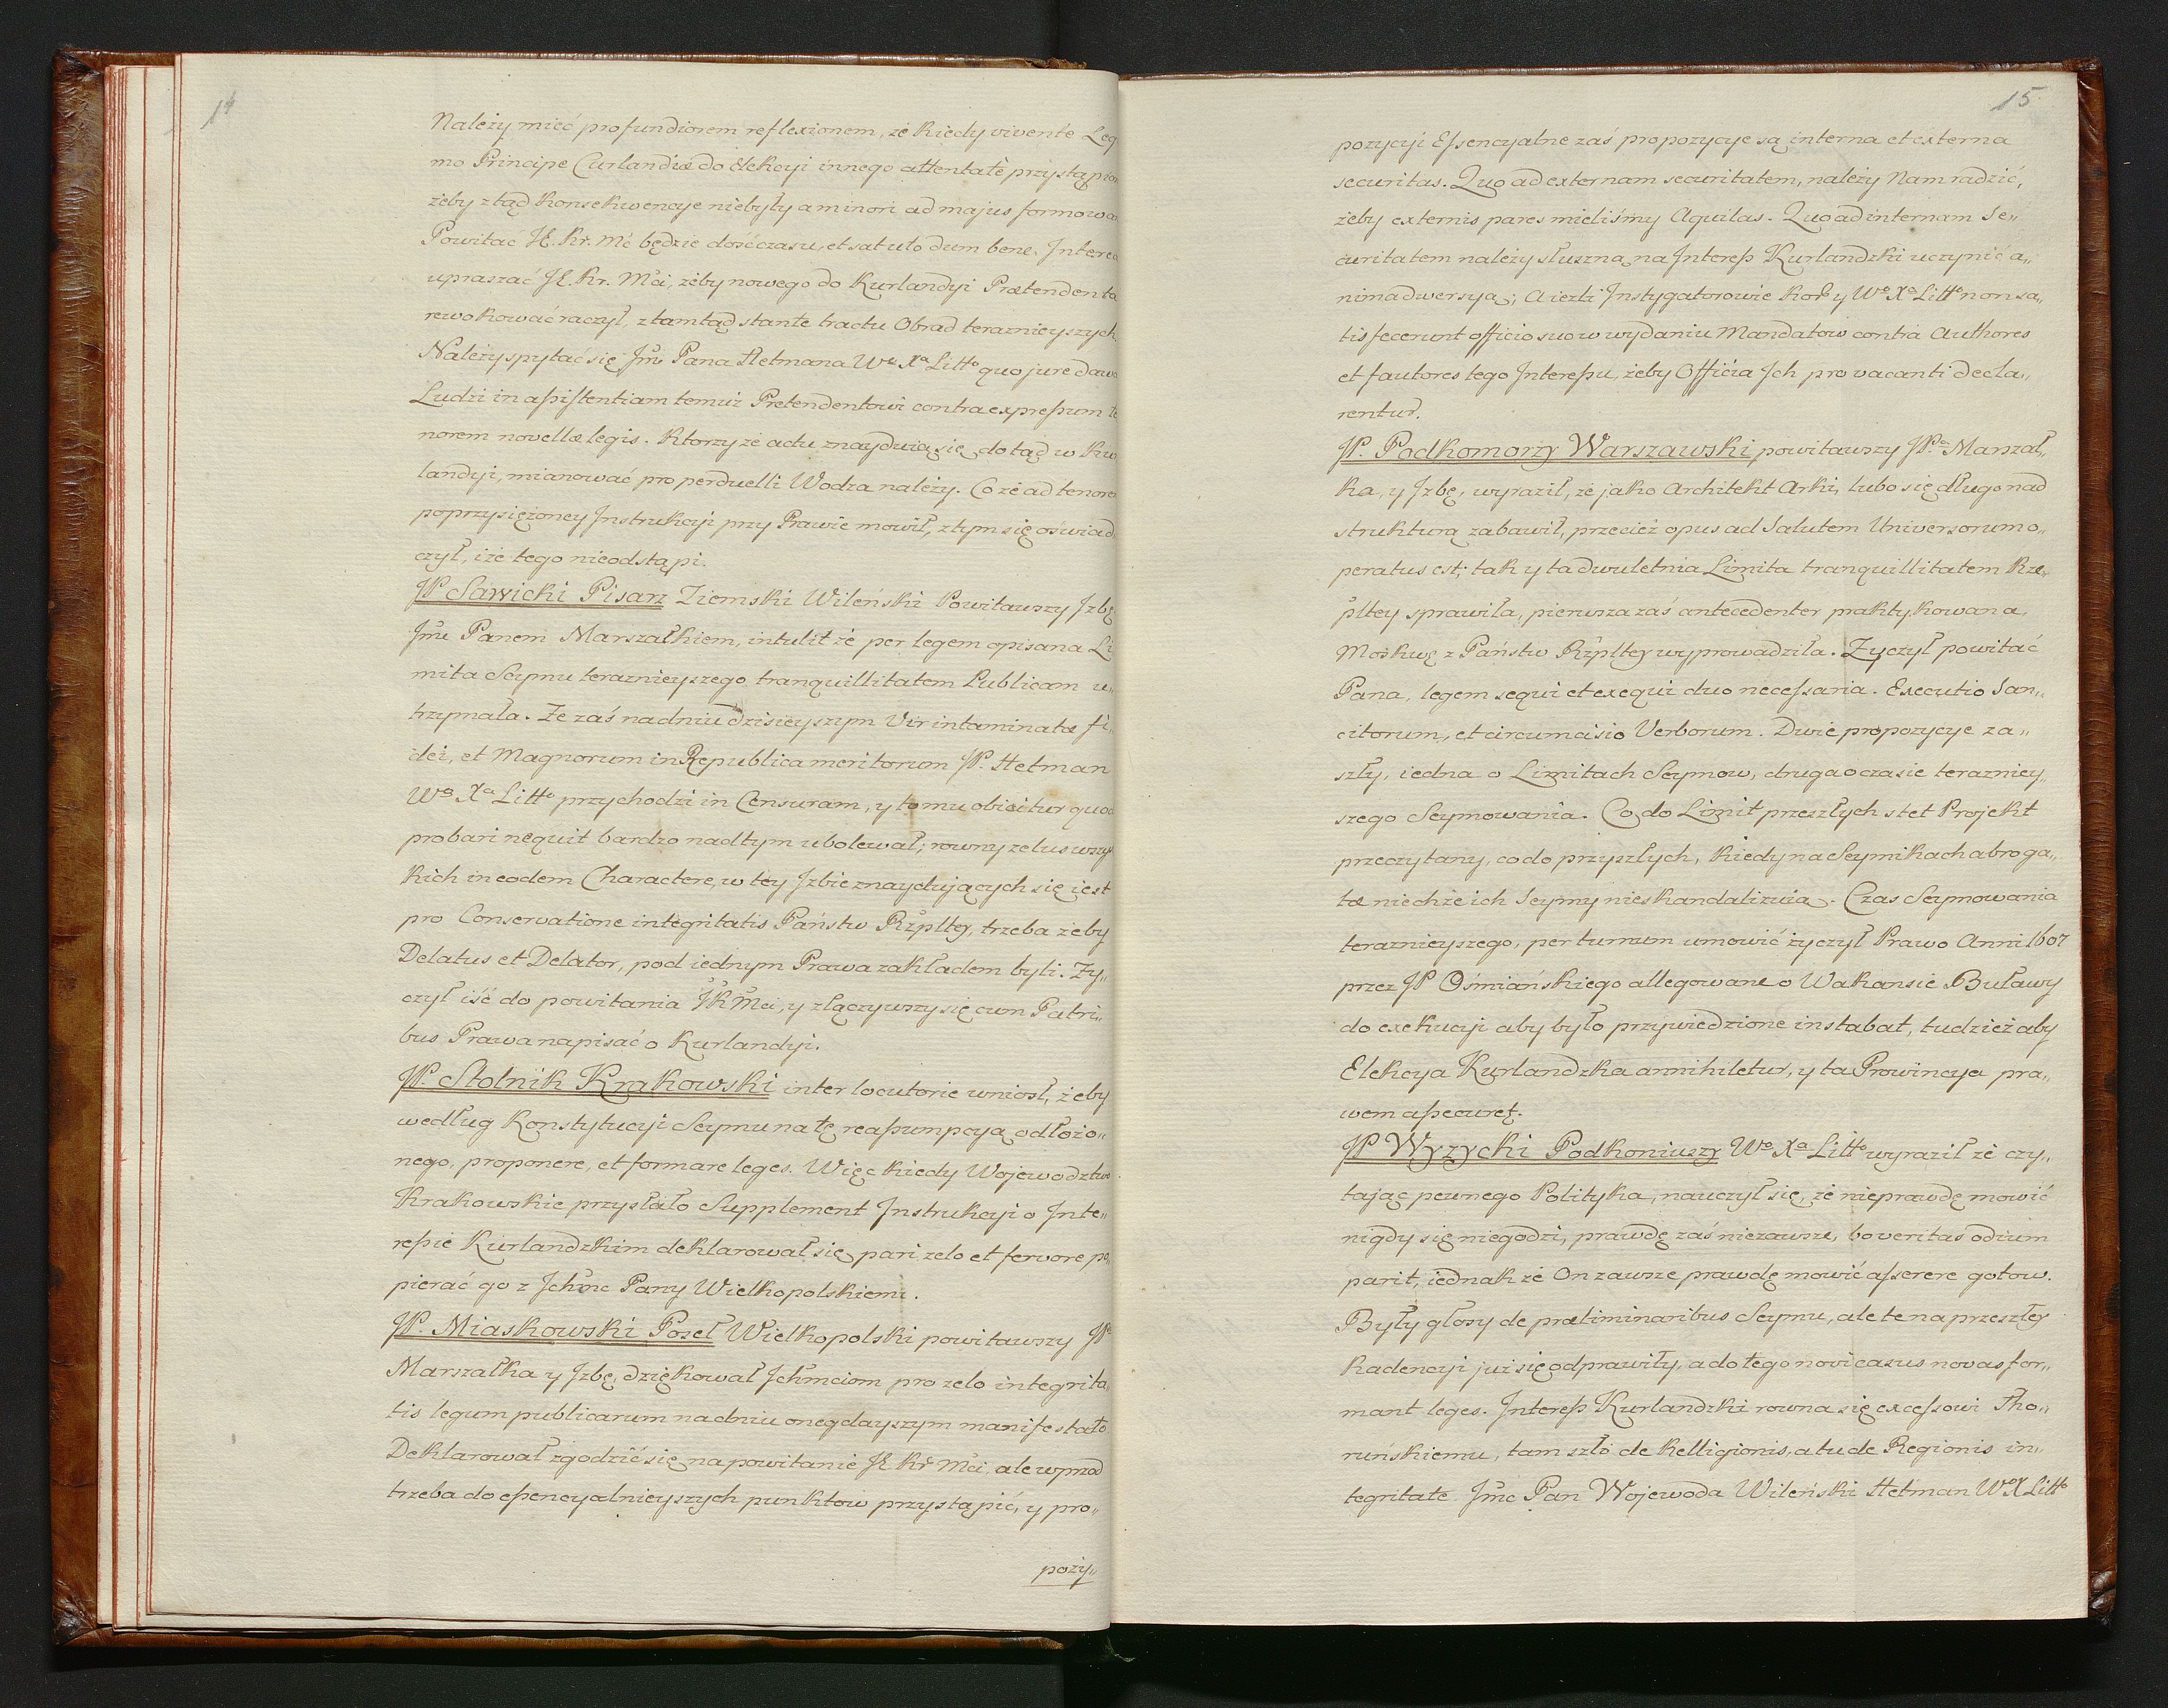 14
Należy mieć profundiorem reflexionem, że kiedy vivente Leg
mo Principe Curlandiæ do Elekcyi innego attentatè przystąpion
żeby ztąd konsekwencye niebyły a minori ad majus formowa
Powitać JE. Kr. Mć będzie dość czasu, et sat uto dum bene. Interea
upraszać JE. Kr. Mći, żeby nowego do Kurlandyi Prætendenta
rewokować raczył, ztamtąd stante tractu Obrad teraznieyszych.
Należy spytać się Jmć Pana Hetmana Wo Xa Litto quo jure dawa
Ludzi in aßistentiam temuż Pretendentowi contra expreßum te
norem novellæ legis. Ktorzy że actu znayduią się dotąd w Kur
landyi, mianować pro perduelli Wodza należy. Co że ad tenore
poprzysiężoney Instrukcyi przy Prawie mowił, ztym się oświad
czył, iże tego nieodstąpi.
JP. Sawicki Pisarz Ziemski Wileński Powitawszy Jzbę
Jmć Panem Marszałkiem, intulit że per legem opisana Li
mita Seymu teraznieyszego tranquillitatem Publicam u„
trzymała. Że zaś nadniu dzisieyszym Vir intaminatæ fi„
dei, et Magnorum in Republica meritorum JP. Hetman
Wo Xa Litto przychodzi in Censuram, y to mu obiicitur quod
probari nequit bardzo nadtym ubolewał; rowny zelus wszyst
kich in eodem Charactere, w tey Jzbie znaydujących się iest
pro Conservatione integritatis Państw Rzpltey, trzeba żeby
Delatus et Delator, pod iednym Prawa zakładem byli. Ży„
czył iść do powitania JKMci, y złączywszy się cum Patri„
bus Prawa napisać o Kurlandyi.
JP. Stolnik Krakowski interlocutorie wniosł, żeby
według Konstytucyi Seymu na tę reaßumpcyą odłożo„
nego, proponere, et formare leges. Więc kiedy Wojewodztwo
Krakowskie przysłało Supplement Instrukcyi o Inte„
reßie Kurlandzkim deklarował się pari zelo et fervore po„
pierać go z Jchmc Pany Wielkopolskiemi.
JP. Miaskowski Poseł Wielkopolski powitawszy JPa
Marszałka y Jzbę, dziękował Jchmciom pro zelo integrita„
tis legum publicarum nadniu onegdayszym manifestato.
Deklarował zgodzić się na powitanie JE Kr Mci, ale wprzod
trzeba do eßencyalnieyszych punktow przystąpić, y pro„
pozy„
15
pozycyi Eßencyalne zaś propozycye są interna et externa
securitas. Quo ad externam securitatem, należy Nam radzić,
żeby externis pares mieliśmy Aquilas. Quo ad internam Se„
curitatem należy słuszną na Intereß Kurlandzki uczynić a„
nimadwersyą; A ieżli Instygatorowie Kor y Wo Xa Litto non sa„
tisfecerunt officio suo w wydaniu Mandatow contra Authores
et fautores tego Intereßu, żeby Officia Jch pro vacanti decla„
rentur.
JP. Podkomorzy Warszawski powitawszy JPa Marszał„
ka, y Jzbę, wyraził, że jako Architekt Arki, lubo się długo nad
strukturą zabawił, przecież opus ad Salutem Universorum o„
peratus est; tak y ta dwuletnia Limita tranquillitatem Rze„
pltey sprawiła, pierwsza zaś antecedenter praktykowana,
Moskwę z Państw Rzpltey wyprowadziła. Życzył powitać
Pana, legem sequi et exequi duo necessaria. Executio San„
citorum, et circumcisio Verborum. Dwie propozycye za„
szły, iedna o Limitach Seymow, druga o czasie terazniey„
szego Seymowania. Co do Limit przeszłych stet Projekt
przeczytany, co do przyszłych, kiedy na Seymikach abroga„
tæ niechże ich Seymy nieskandalizuią. Czas Seymowania
teraznieyszego, per turnum umowić życzył Prawo Anni 1607
przez JP Ośmiańskiego allegowane o Wakansie Buławy
do exekucyi aby było przywiedzione instabat, tudzież aby
Elekcya Kurlandzka annihiletur, y ta Prowincya pra„
wem aßecuret.
JP Wyzycki Podkoniuszy Wo Xa Litto wyraził że czy„
tając pewnego Polityka, nauczył się, że nieprawdę mowić
nigdy się niegodzi, prawdę zaś niezawsze, bo veritas odium
parit, iednak że On zawsze prawdę mowić aßerere gotow.
Były głosy de præliminaribus Seymu, ale te na przeszłey
Kadencyi już się odprawiły, a do tego novi casus novas for„
mant leges. Intereß Kurlandzki rowna się excessowi Tho„
ruńskiemu, tam szło de Relligionis, a tu de Regionis in„
tegritate Jmc Pan Wojewoda Wileński Hetman WX Litto